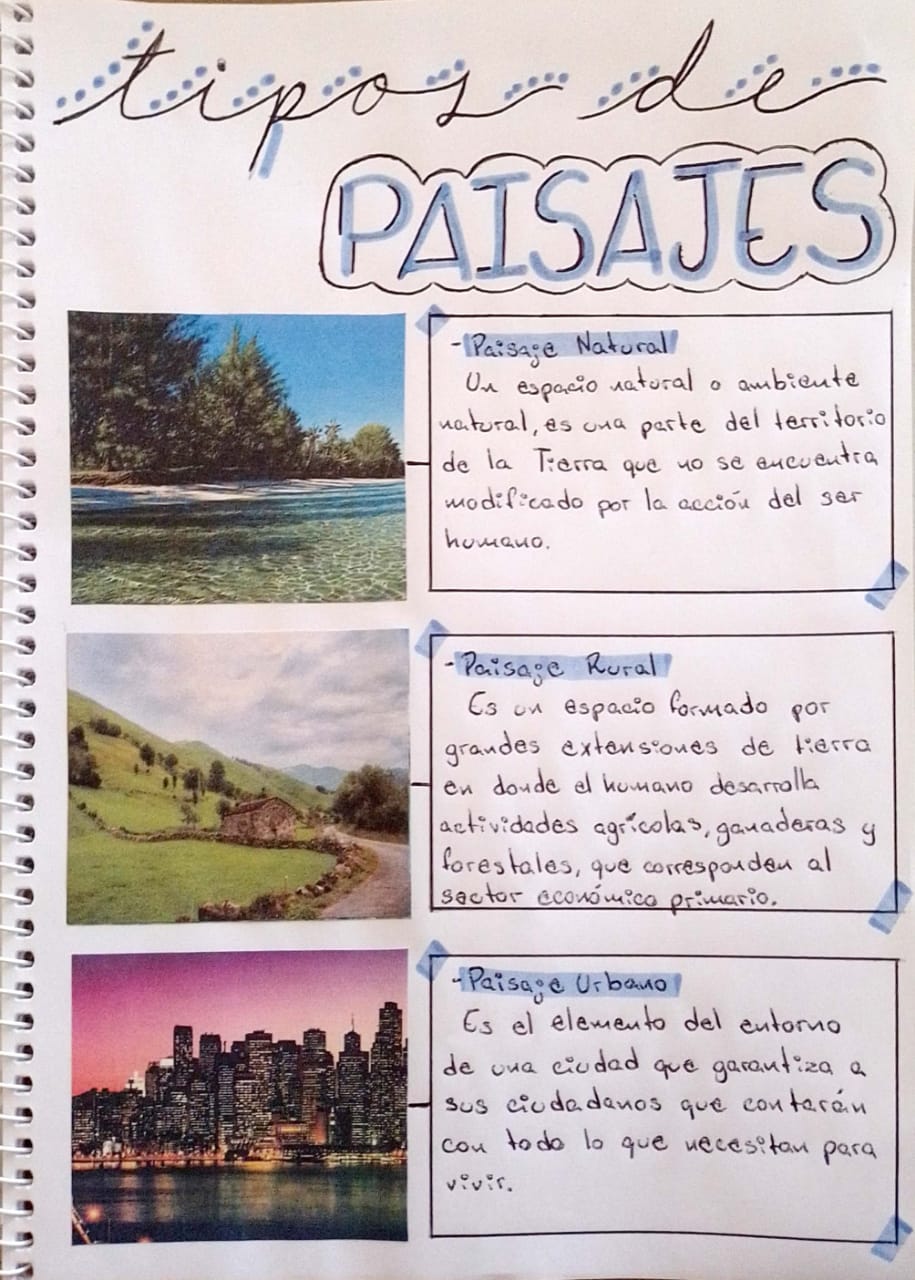 tipos de
PAISAJES
- Paisaje Natural
Un espacio natural o ambiente
natural, es una parte del territorio
de la Tierra que no se encuentra
modificado por la acción del ser
humano.
- Paisaje Rural
Es un espacio formado por
grandes extensiones de tierra
en donde el humano desarrolla
actividades agrícolas, ganaderas y
forestales, que corresponden al
sector económico primario.
- Paisaje Urbano
Es el elemento del entorno
de una ciudad que garantiza a
sus ciudadanos que contarán
con todo lo que necesitan para
vivir.